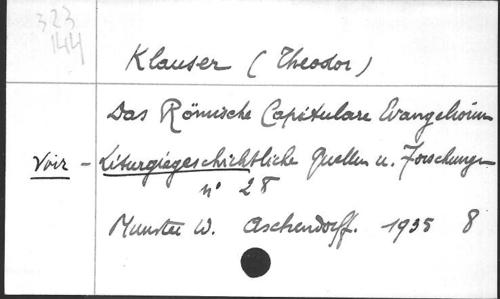 323
144
Klauser (Theodor)
Das Römische Capitulare Evangelium
Voir - Liturgiegeschichtliche Quellen u. Forschungen
n° 28
Munster W. Aschendorff. 1935 8